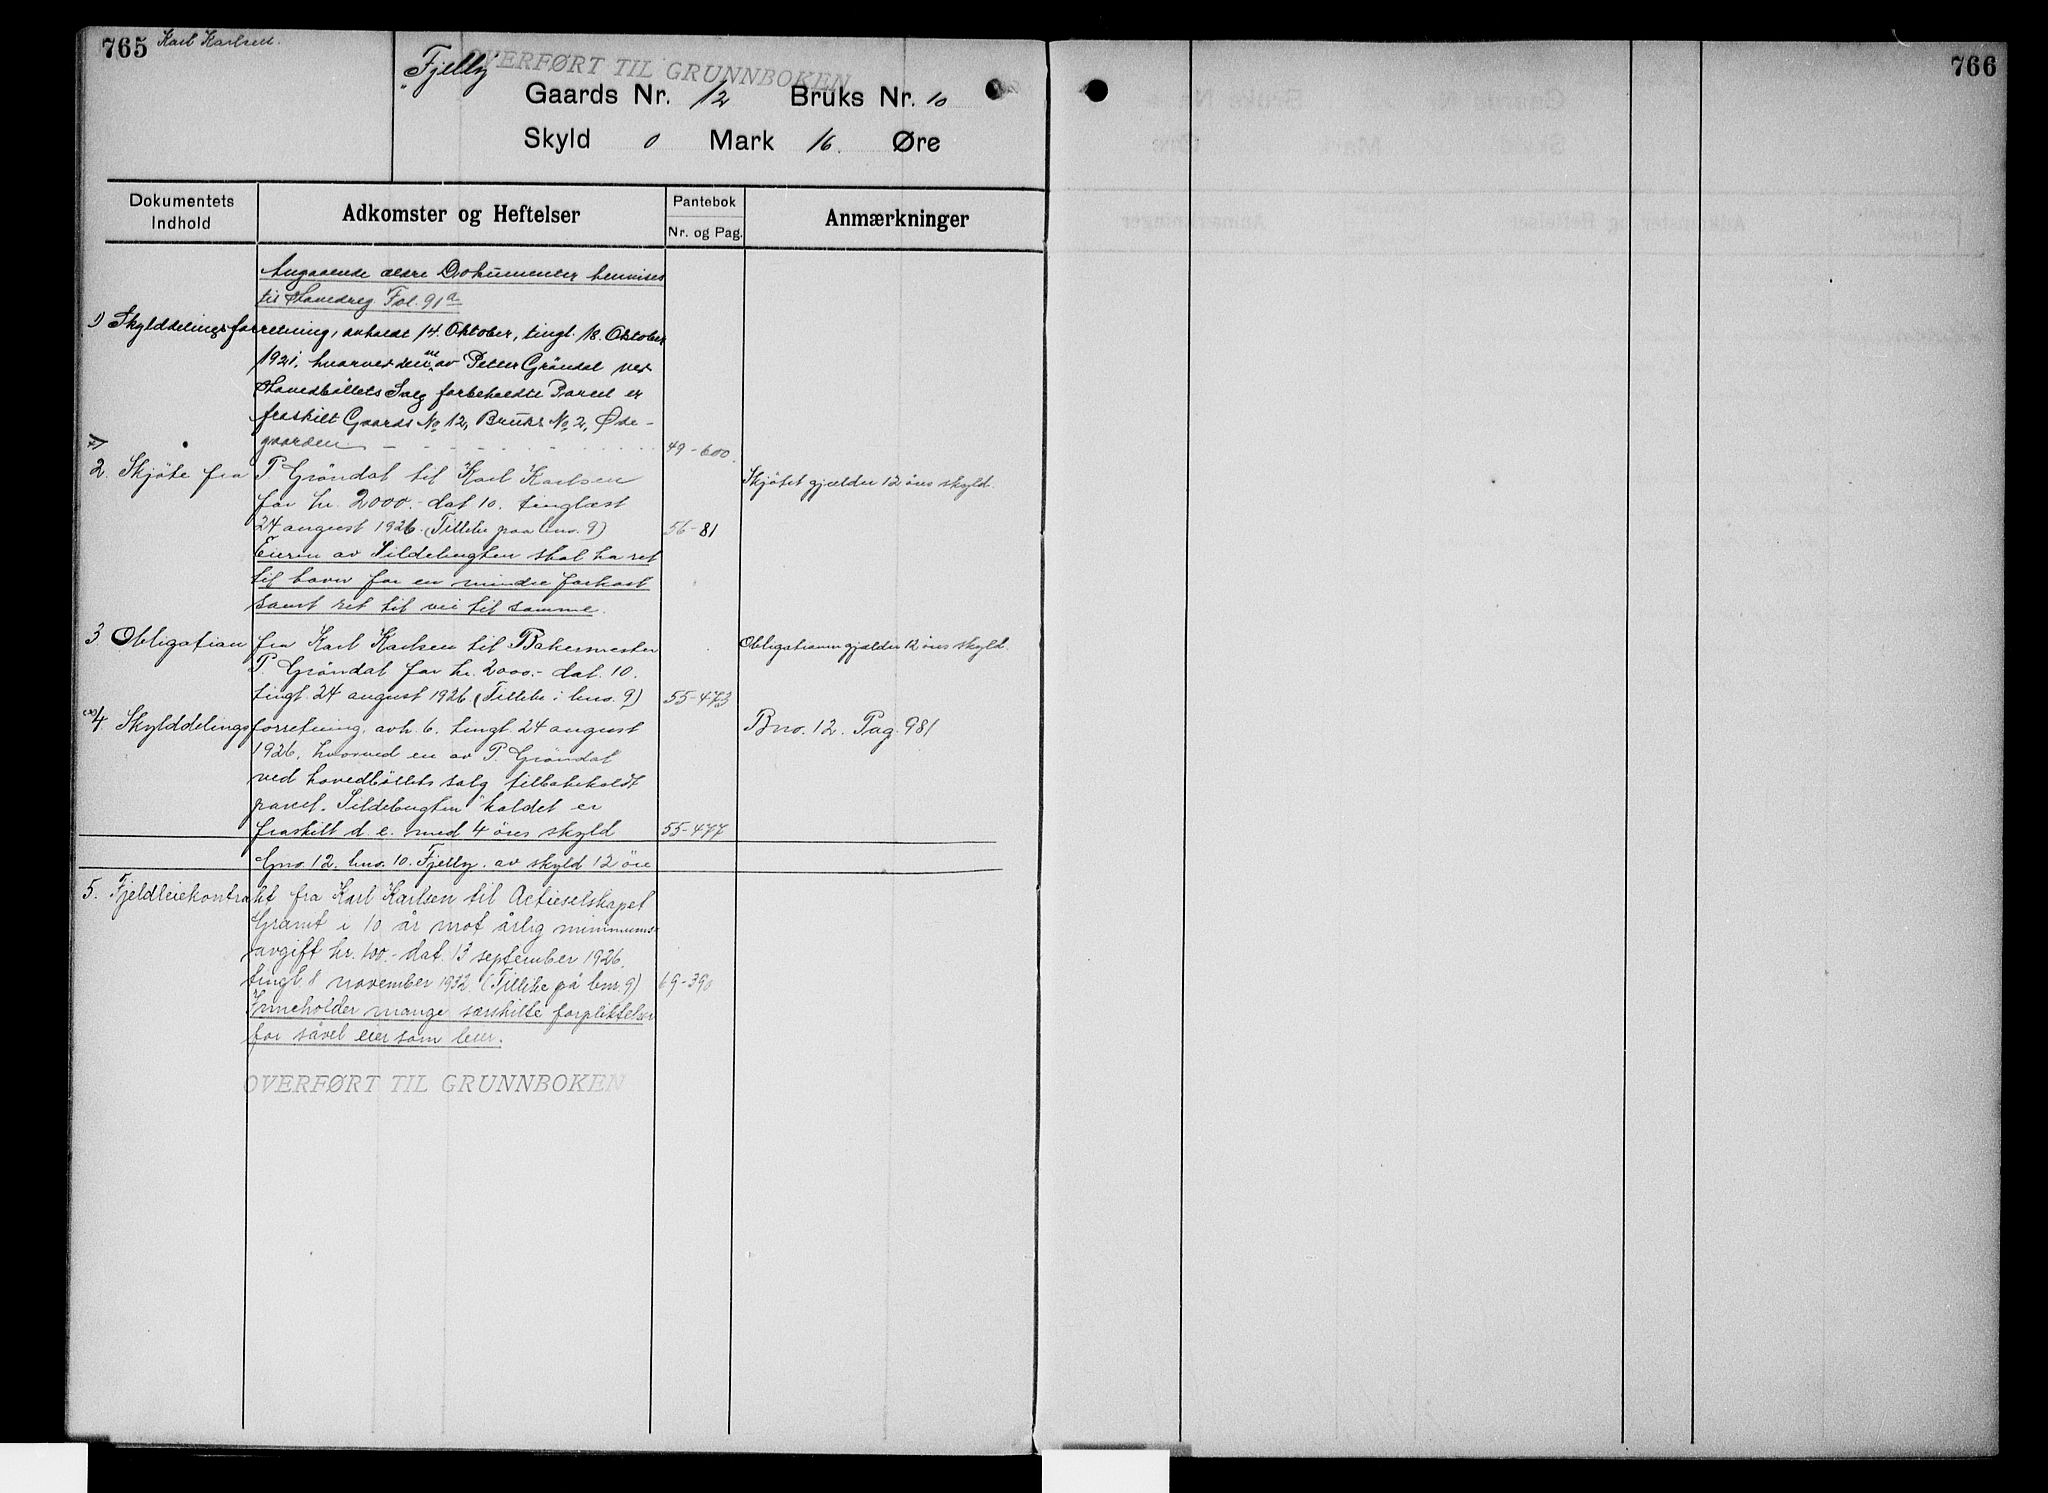 765 Karl Karlsen.
766
OVERFØRT TIL GRUNNBOKEN
"Fjelly
Gaards Nr. 12 Bruks Nr. 10
Skyld 0 Mark 16. Øre
Dokumentets Indhold
Adkomster og Heftelser
Pantebok
Nr. og Pag.
Anmærkninger
Angaaende ældre Dokumenter henvises
til Hovedreg. Fol. 91a
1) Skylddelingsforretning, avholdt 14. Oktober, tingl. 18. Oktober
1921, hvorved den av Petter Gröndal ved
Hovedböllets Salg forbeholdte Parcel er
fraskilt Gaards No 12, Bruks No 2, Øde-
gaarden 49-600.
2. Skjöte fra P. Gröndal til Karl Karlsen Skjötet gjælder 12 öres skyld.
for kr. 2000.- dat 10. tinglæst
24 august 1926. (Tillike paa bno. 9) 56-81
Eieren av Sildebugten skal ha ret
til tover for en mindre farkost
samt ret til vei til samme.
3 Obligation fra Karl Karlsen til Bakermester Obligationen gjælder 12 öres skyld.
P. Gröndal for kr. 2000.- dat. 10.
tingl. 24 august 1926 (Tillike i bno. 9) 55-473
4. Skylddelingsforretning, avh. 6. tingl. 24 august Bno. 12. Pag. 981
1926, hvorved en av P. Gröndal
ved hovedböllets salg tilbakeholdt
parcel. Sildebugten kaldet er
fraskilt d. e. med 4 öres skyld 55-477
Gno. 12. bno. 10. Fjelly. av skyld 12 öre
5. Fjeldleiekontrakt fra Karl Karlsen til Actieselskapet
Granit i 10 år mot årlig minimums-
avgift kr. 100.- dat. 13 september 1926.
tingl. 8 november 1932. (Tillike på bnr. 9) 69-390
Inneholder mange særskilte forpliktelser
for såvel eier som leier.
OVERFØRT TIL GRUNNBOKEN